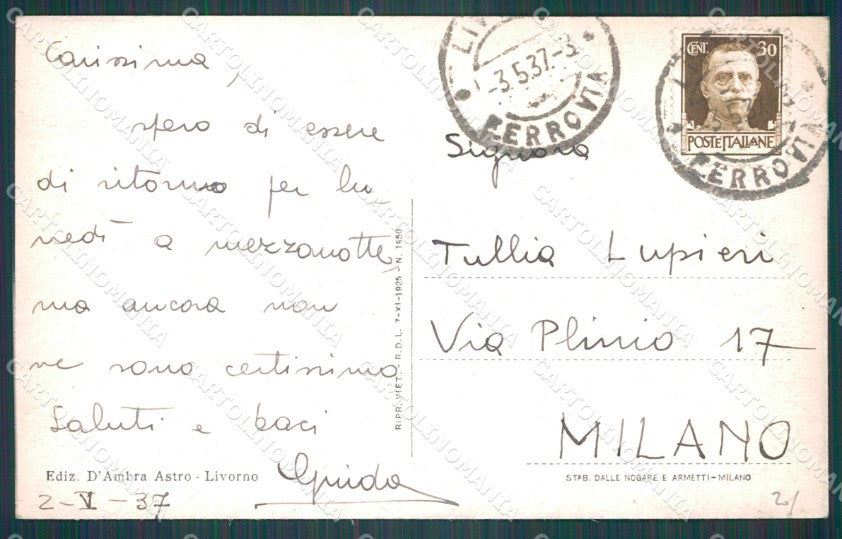 Carissima,
spero di essere
di ritorno per lu
nedì a mezzanotte,
ma ancora non
ne sono certissimo
Saluti e baci
Guido
Ediz. D'Ambra Astro - Livorno
2-V-37
RIPR. VIET. - R.D.L. 7-XI-1925 - N. 1950
LIV
-3.5.37-3
FERROVIA
CENT. 30
POSTE ITALIANE
FERROVIA
Signora
Tullia Lupieri
Via Plinio 17
MILANO
STAB. DALLE NOGARE E ARMETTI - MILANO
2/
CARTOLINOMANIA